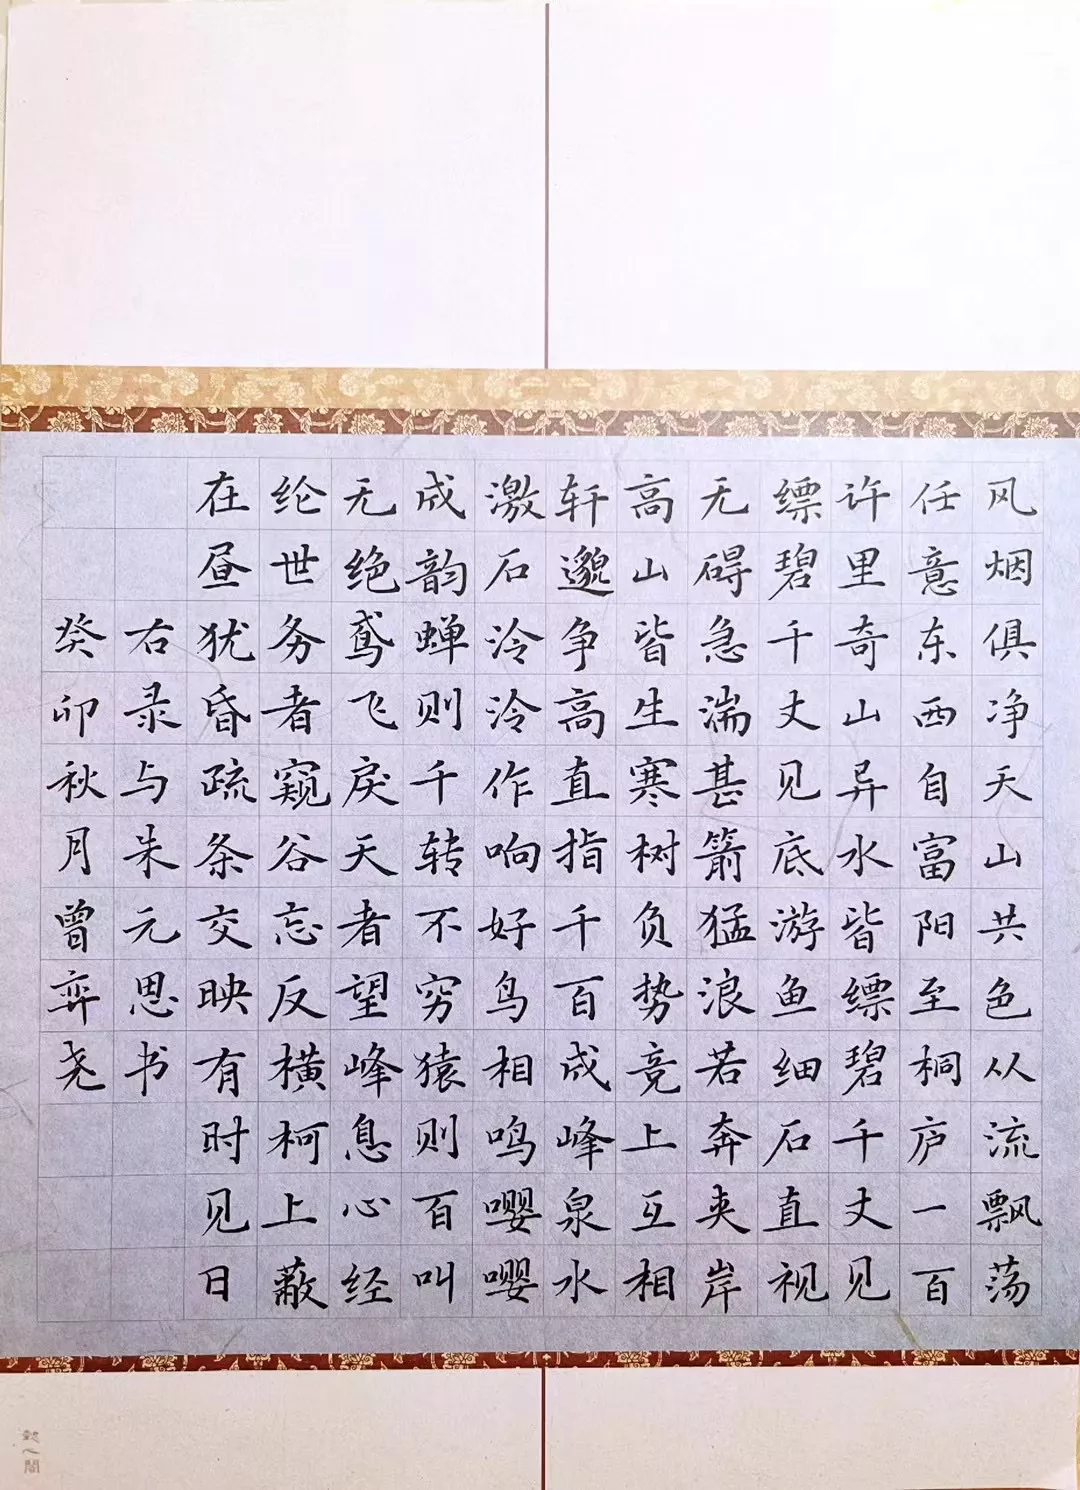 风烟俱净天山共色从流飘荡
任意东西自富阳至桐庐一百
许里奇山异水皆缥碧千丈见
缥碧千丈见底游鱼细石直视
无碍急湍甚箭猛浪若奔夹岸
高山皆生寒树负势竞上互相
轩邈争高直指千百成峰泉水
激石泠泠作响好鸟相鸣嘤嘤
成韵蝉则千转不穷猿则百叫
无绝鸢飞戾天者望峰息心经
纶世务者窥谷忘反横柯上蔽
在昼犹昏疏条交映有时见日
右录与朱元思书
癸卯秋月曾弈尧